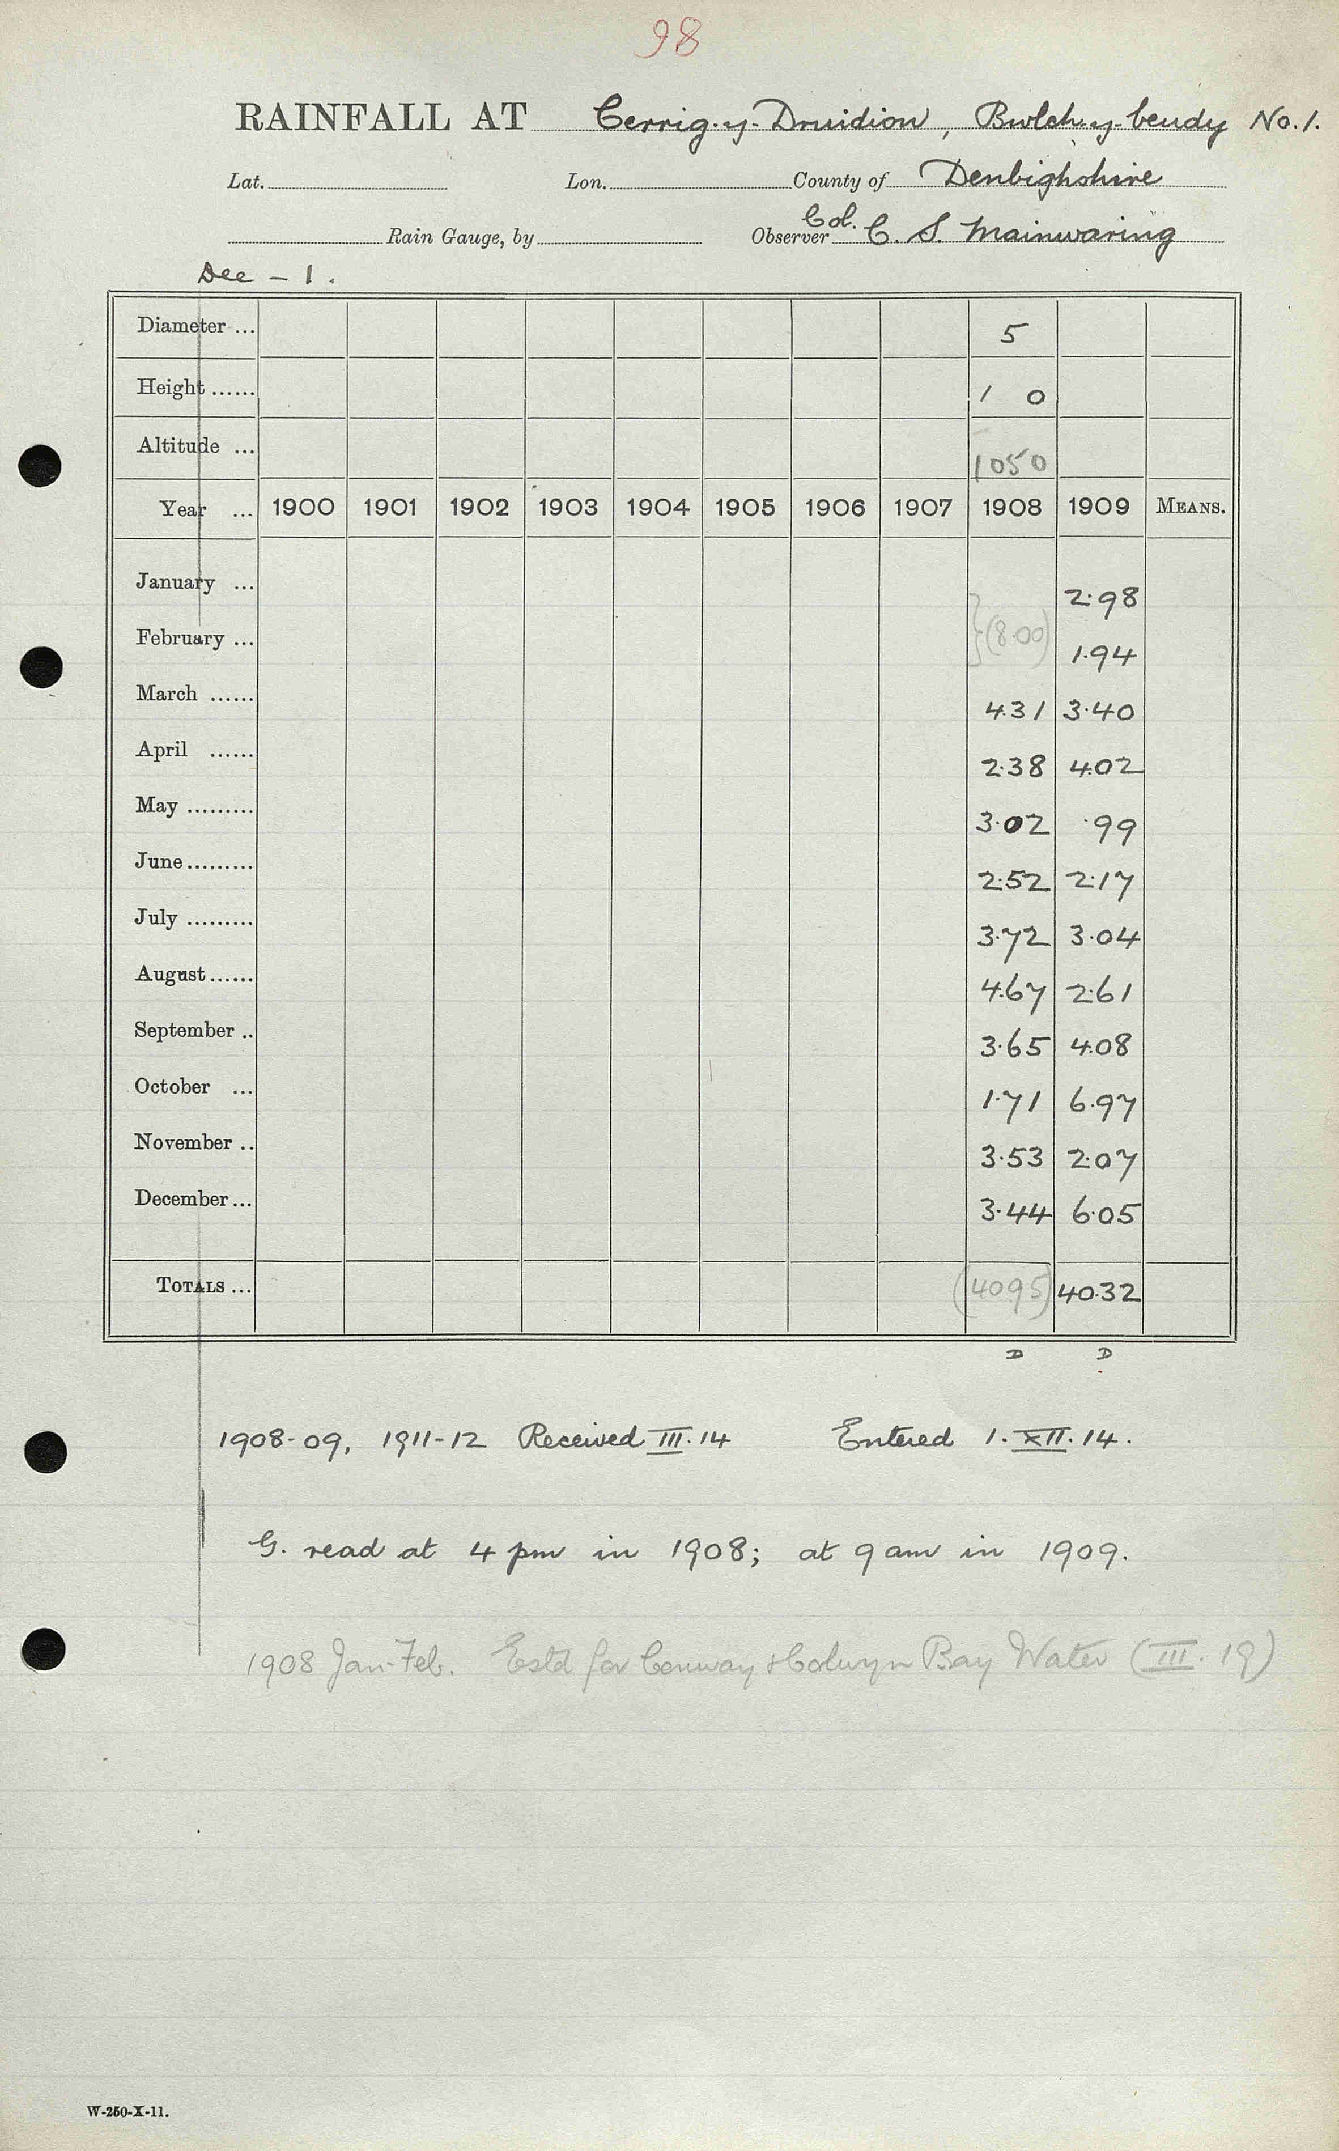 98
RAINFALL AT Cerrig-y-Druidion, Bwlch-y-beudy No. 1.
Lat. Lon. County of Denbighshire
Rain Gauge, by Observer Col. C. S. Mainwaring
Dec - 1.
Diameter ... 5
Height ...... 1 0
Altitude ... 1050
Year ... 1900 1901 1902 1903 1904 1905 1906 1907 1908 1909 MEANS.
January ... 2.98
February ... } (8.00) 1.94
March ...... 4.31 3.40
April ...... 2.38 4.02
May ......... 3.02 .99
June ......... 2.52 2.17
July ......... 3.72 3.04
August ...... 4.67 2.61
September .. 3.65 4.08
October ... 1.71 6.97
November .. 3.53 2.07
December ... 3.44 6.05
TOTALS ... (40.95) 40.32
D D
1908-09, 1911-12 Received III.14 Entered 1.XII.14.
G. read at 4 pm in 1908; at 9 am in 1909.
1908 Jan-Feb. Estd for Conway & Colwyn Bay Water (III. 19)
W-250-X-11.